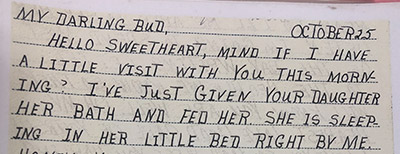 MY DARLING BUD, OCTOBER 25
HELLO SWEETHEART, MIND IF I HAVE
A LITTLE VISIT WITH YOU THIS MORN-
ING? I'VE JUST GIVEN YOUR DAUGHTER
HER BATH AND FED HER SHE IS SLEEP-
ING IN HER LITTLE BED RIGHT BY ME.